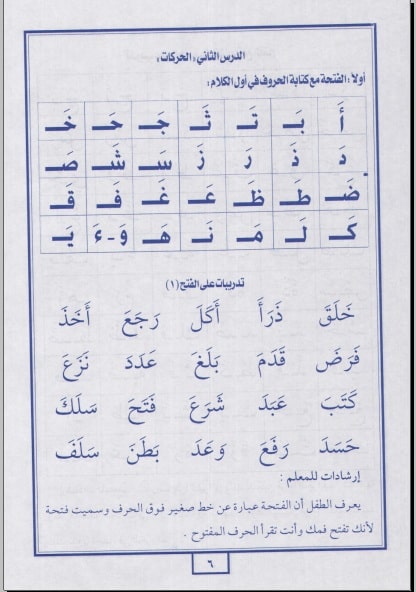 الدرس الثاني: «الحركات»
أولاً: الفتحة مع كتابة الحروف في أول الكلام:
أَ بَـ تَـ ثَـ جَـ حَـ خَـ
دَ ذَ رَ زَ سَـ شَـ صَـ
ضَـ طَـ ظَـ عَـ غَـ فَـ قَـ
كَـ لَـ مَـ نَـ هَـ وَ - ءَ يَـ
تدريبات على الفتح (١)
خَلَقَ ذَرَأَ أَكَلَ رَجَعَ أَخَذَ
فَرَضَ قَدَمَ بَلَغَ عَدَدَ نَزَعَ
كَتَبَ عَبَدَ شَرَعَ فَتَحَ سَلَكَ
حَسَدَ رَفَعَ وَعَدَ بَطَنَ سَلَفَ
إرشادات للمعلم :
يعرف الطفل أن الفتحة عبارة عن خط صغير فوق الحرف وسميت فتحة
لأنك تفتح فمك وأنت تقرأ الحرف المفتوح .
٦